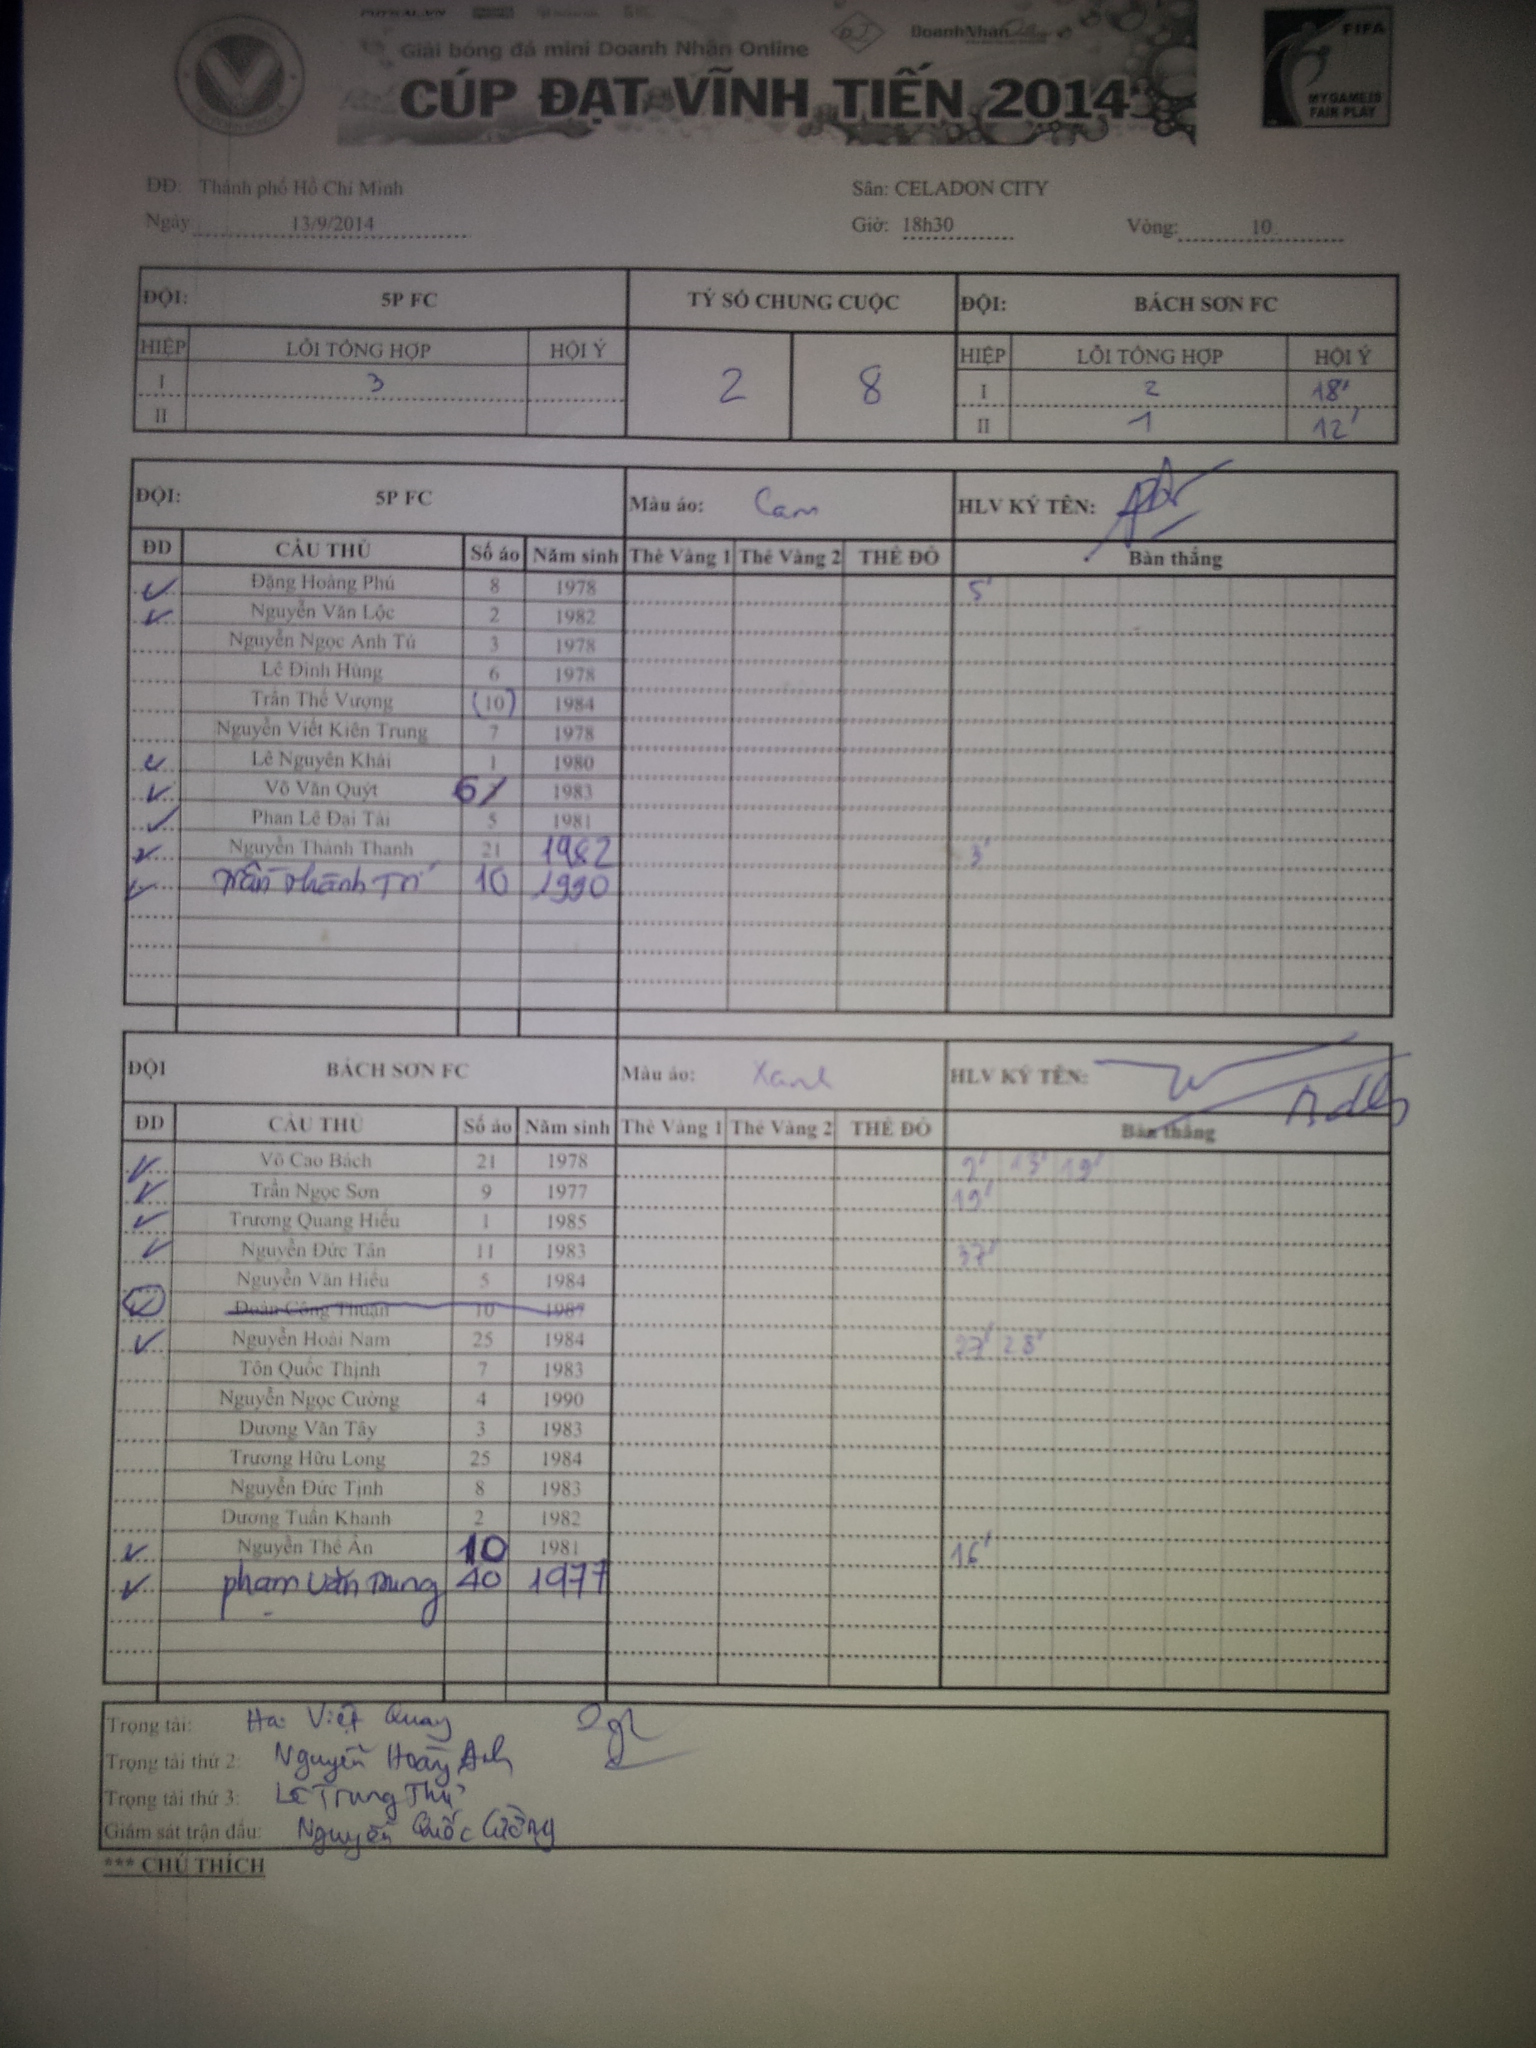 FUTSAL.VN
Giải bóng đá mini Doanh Nhân Online
DoanhNhân
CÚP ĐẠT VĨNH TIẾN 2014
FIFA
MY GAME IS
FAIR PLAY
ĐĐ: Thành phố Hồ Chí Minh Sân: CELADON CITY
Ngày 13/9/2014 Giờ: 18h30 Vòng: 10
ĐỘI: 5P FC TỶ SỐ CHUNG CUỘC ĐỘI: BÁCH SƠN FC
HIỆP LỖI TỔNG HỢP HỘI Ý 2 8 HIỆP LỖI TỔNG HỢP HỘI Ý
I 3 I 2 18'
II II 1 12'
ĐỘI: 5P FC Màu áo: Cam HLV KÝ TÊN:
ĐD CẦU THỦ Số áo Năm sinh Thẻ Vàng 1 Thẻ Vàng 2 THẺ ĐỎ Bàn thắng
Đặng Hoàng Phú 8 1978 5'
Nguyễn Văn Lộc 2 1982
Nguyễn Ngọc Anh Tú 3 1978
Lê Đình Hùng 6 1978
Trần Thế Vượng (10) 1984
Nguyễn Viết Kiên Trung 7 1978
Lê Nguyên Khải 1 1980
Võ Văn Quýt 6 1983
Phan Lê Đại Tài 5 1981
Nguyễn Thành Thanh 21 1982 3'
Trần Thành Trí 10 1990
ĐỘI BÁCH SƠN FC Màu áo: Xanh HLV KÝ TÊN:
ĐD CẦU THỦ Số áo Năm sinh Thẻ Vàng 1 Thẻ Vàng 2 THẺ ĐỎ Bàn thắng
Võ Cao Bách 21 1978 2' 13' 19'
Trần Ngọc Sơn 9 1977 19'
Trương Quang Hiếu 1 1985
Nguyễn Đức Tân 11 1983 37'
Nguyễn Văn Hiếu 5 1984
Đoàn Công Thuận 10 1987
Nguyễn Hoài Nam 25 1984 27' 28'
Tôn Quốc Thịnh 7 1983
Nguyễn Ngọc Cường 4 1990
Dương Văn Tây 3 1983
Trương Hữu Long 25 1984
Nguyễn Đức Tịnh 8 1983
Dương Tuấn Khanh 2 1982
Nguyễn Thế Ân 10 1981 16'
phạm Văn Trung 40 1977
Trọng tài: Hà Việt Quay
Trọng tài thứ 2: Nguyễn Hoàng Anh
Trọng tài thứ 3: Lê Trung Thu
Giám sát trận đấu: Nguyễn Quốc Cường
*** CHÚ THÍCH